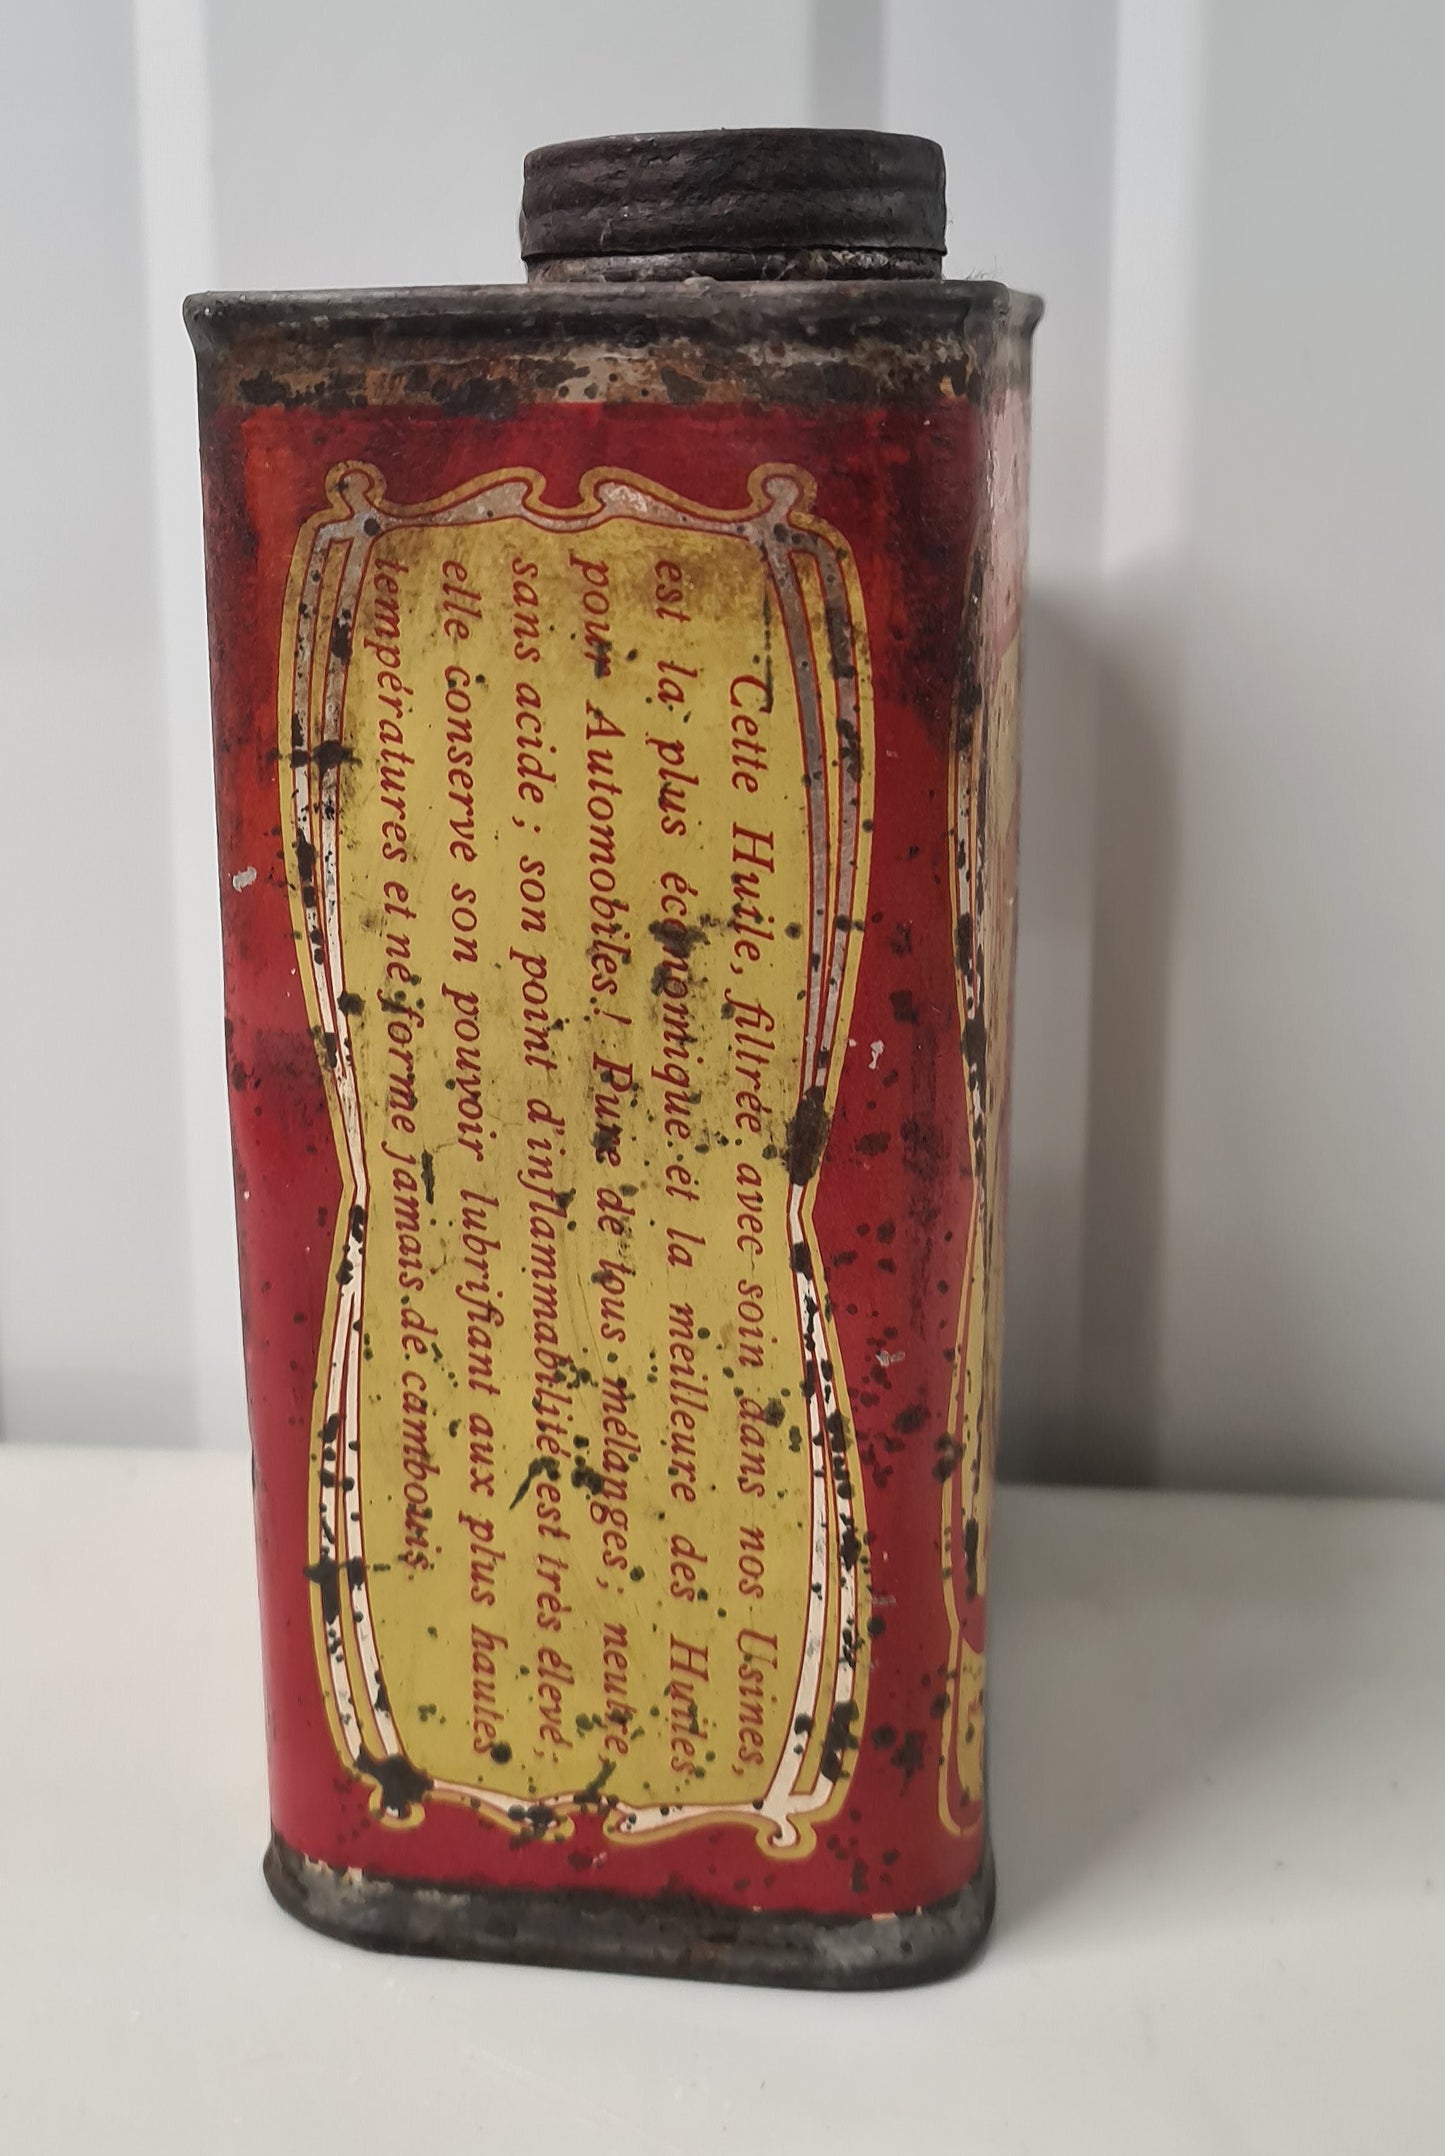 Cette Huile, filtrée avec soin dans nos Usines,
est la plus économique et la meilleure des Huiles
pour Automobiles! Pure de tous mélanges; neutre,
sans acide; son point d'inflammabilité est très élevé;
elle conserve son pouvoir lubrifiant aux plus hautes
températures et ne forme jamais de cambouis.